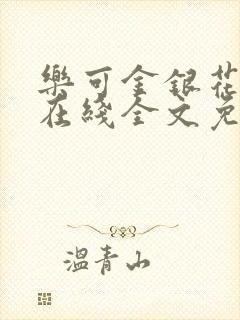 樂可金銀花
在綫全文免
溫青山